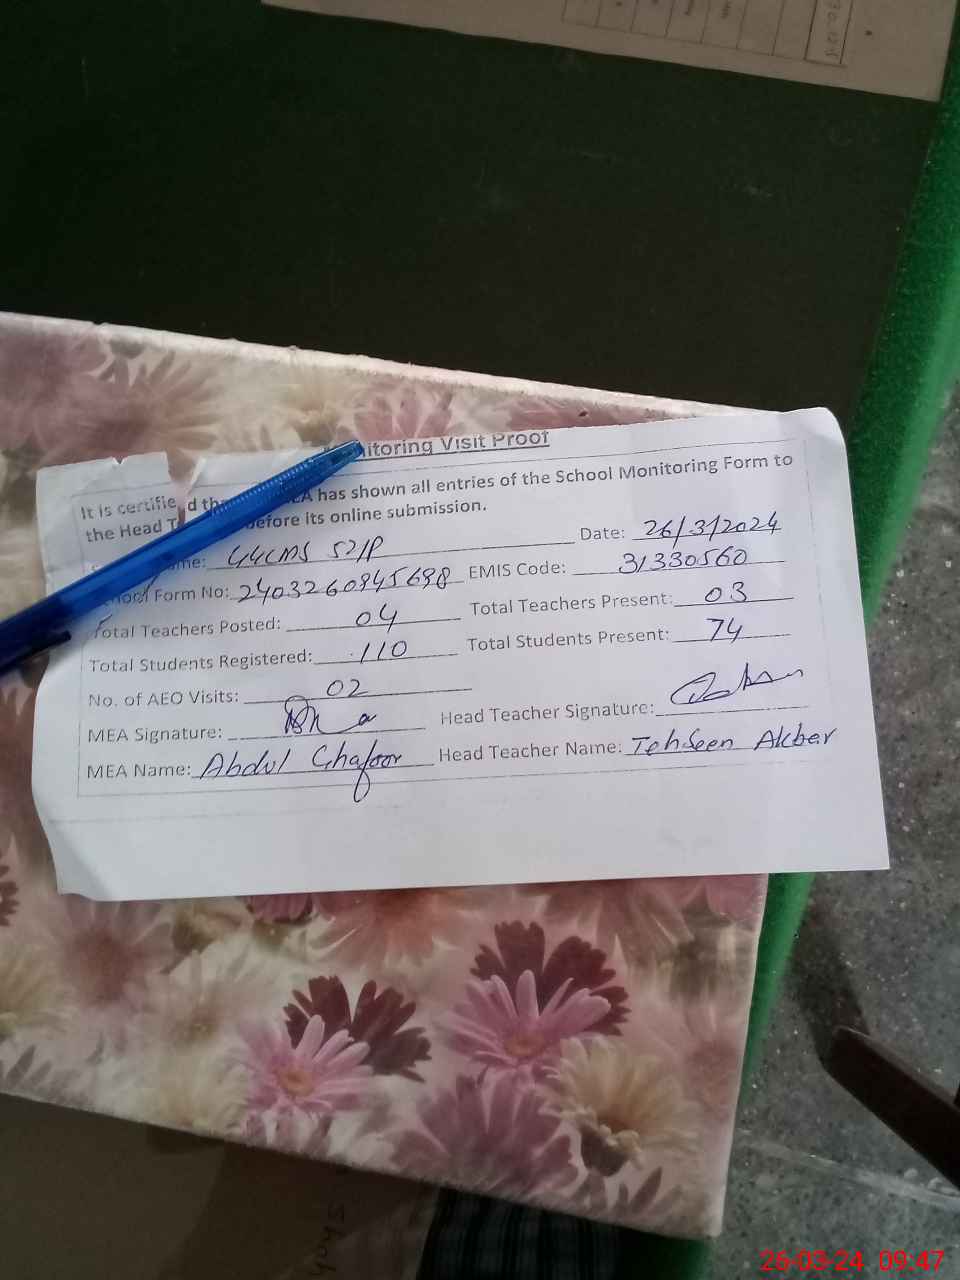 itoring Visit Proof
It is certifie d th EA has shown all entries of the School Monitoring Form to
the Head T before its online submission.
me: Date: 26/3/2024
School Form No: 2403260945698 EMIS Code: 31330560
Total Teachers Posted: 04 Total Teachers Present: 03
Total Students Registered: 110 Total Students Present: 74
No. of AEO Visits: 02
MEA Signature: Head Teacher Signature:
MEA Name: Abdul Ghafoor Head Teacher Name: Tehseen Akbar
26-03-24 09:47